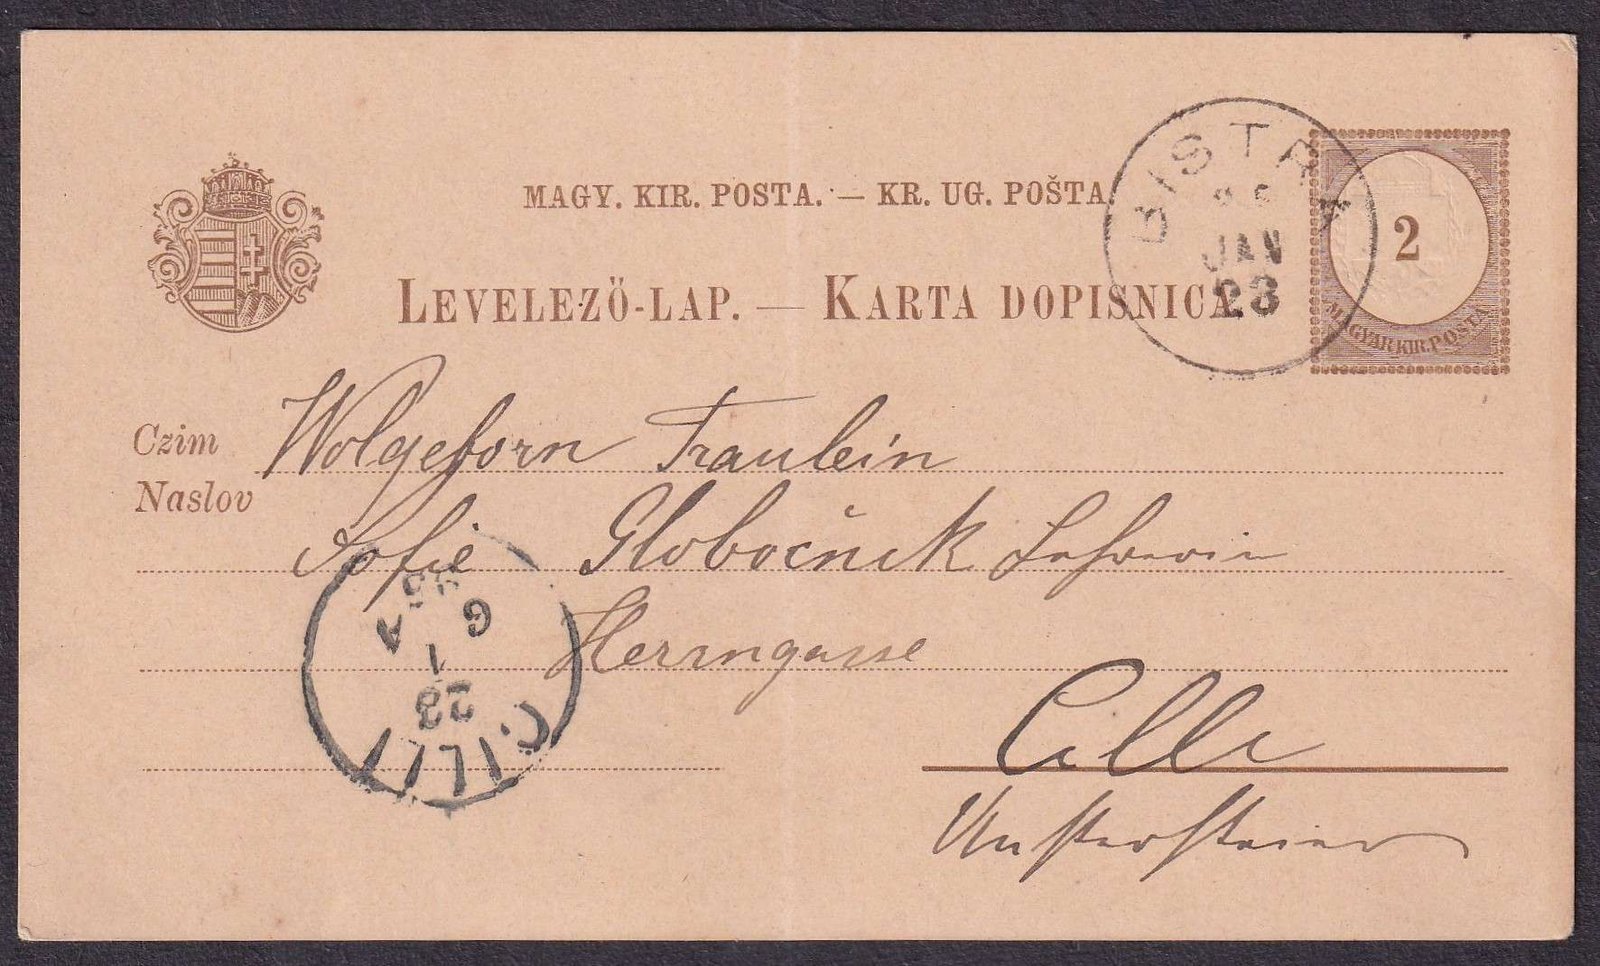 MAGY. KIR. POSTA. — KR. UG. POŠTA
LEVELEZŐ-LAP. — KARTA DOPISNICA.
BISTRA
JAN
23
2
MAGYAR KIR. POSTA
Czim
Naslov
Wolgeborn Fraulein
Sofie Globočnik Lehrerin
Herrngasse
Cilli
Untersteier
CILLI
23
1
6